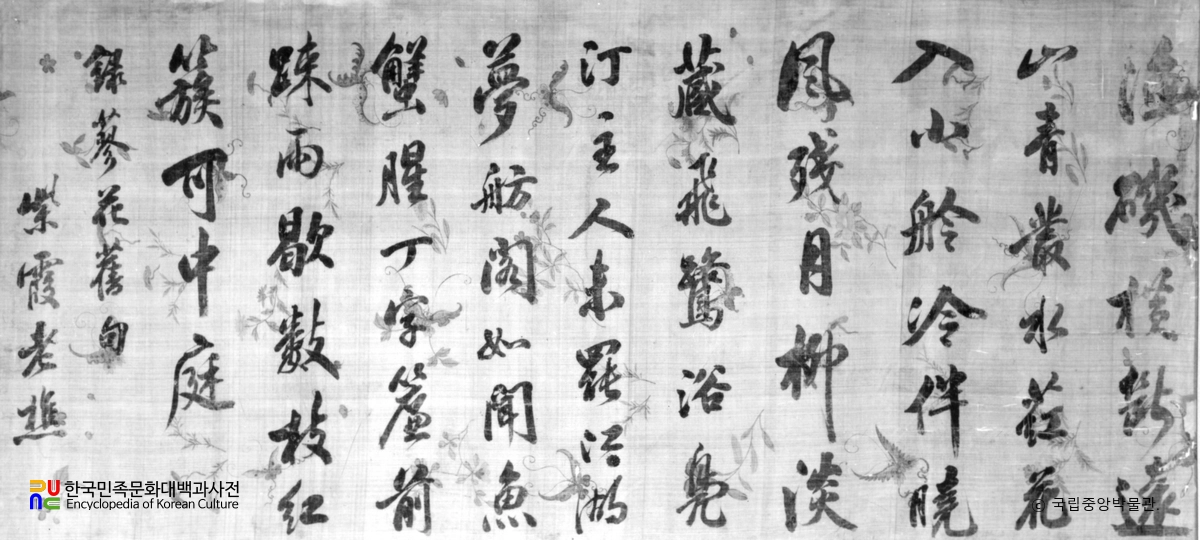 漁磯橫遠
山青叢水葒花
入小舲冷伴曉
風殘月柳淡
藏飛鷺浴鳧
汀主人未罷江湖
夢舫閣如聞魚
蟹腥丁字簾前
踈雨歇數枝紅
簇可中庭
錄蓼花舊句
紫霞老樵
한국민족문화대백과사전
Encyclopedia of Korean Culture
© 국립중앙박물관.